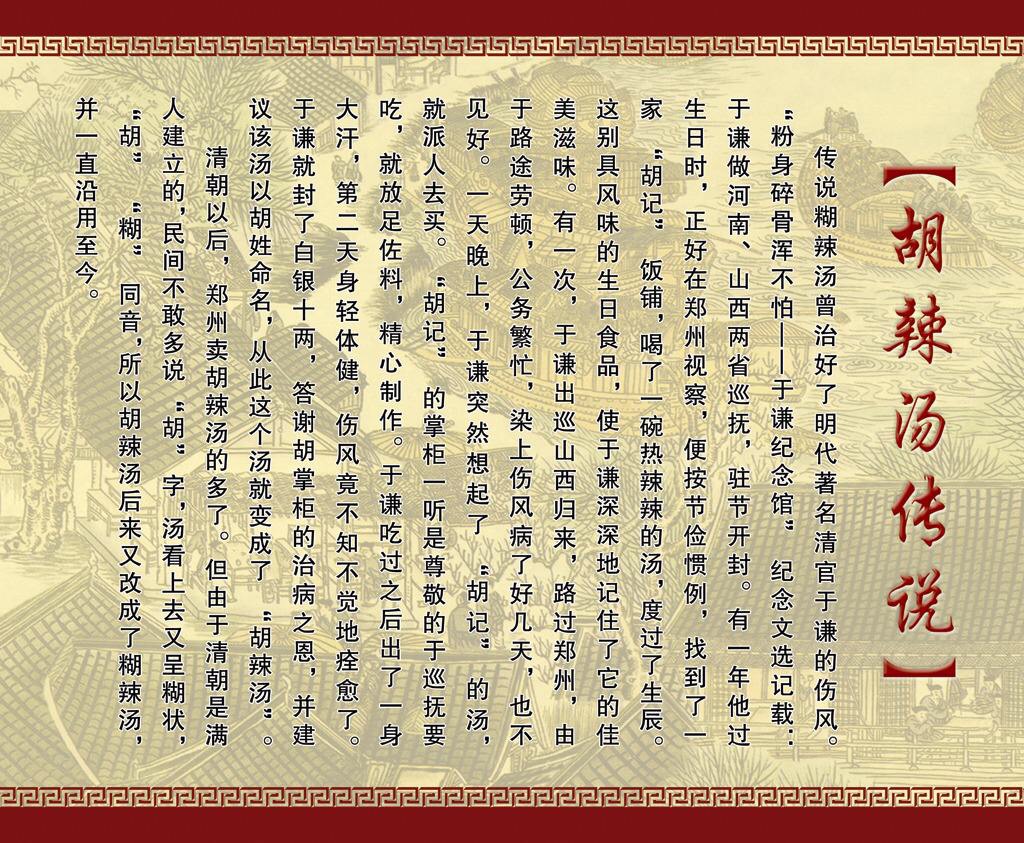 【胡辣汤传说】
传说糊辣汤曾治好了明代著名清官于谦的伤风。
“粉身碎骨浑不怕——于谦纪念馆”纪念文选记载：
于谦做河南、山西两省巡抚，驻节开封。有一年他过
生日时，正好在郑州视察，便按节俭惯例，找到了一
家“胡记”饭铺，喝了一碗热辣辣的汤，度过了生辰。
这别具风味的生日食品，使于谦深深地记住了它的佳
美滋味。有一次，于谦出巡山西归来，路过郑州，由
于路途劳顿，公务繁忙，染上伤风病了好几天，也不
见好。一天晚上，于谦突然想起了“胡记”的汤，
就派人去买。“胡记”的掌柜一听是尊敬的于巡抚要
吃，就放足佐料，精心制作。于谦吃过之后出了一身
大汗，第二天身轻体健，伤风竟不知不觉地痊愈了。
于谦就封了白银十两，答谢胡掌柜的治病之恩，并建
议该汤以胡姓命名，从此这个汤就变成了“胡辣汤”。
清朝以后，郑州卖胡辣汤的多了。但由于清朝是满
人建立的，民间不敢多说“胡”字，汤看上去又呈糊状，
“胡”“糊”同音，所以胡辣汤后来又改成了糊辣汤，
并一直沿用至今。